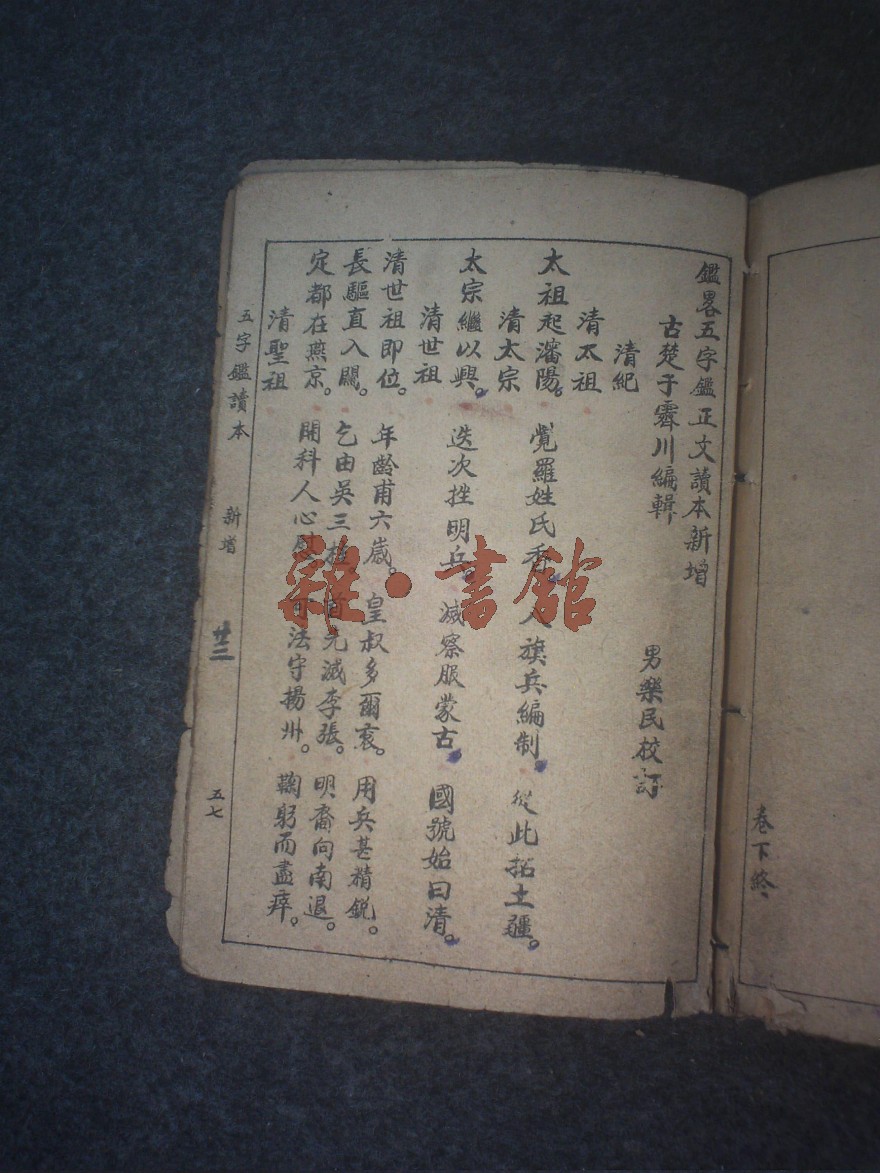 卷下終
鑑畧五字鑑正文讀本新增
古楚子霽川編輯 男樂民校訂
清紀
清太祖
太祖起瀋陽。覺羅姓氏香。八旗兵編制。從此拓土疆。
清太宗
太宗繼以興。迭次挫明兵。滅察服蒙古。國號始曰清。
清世祖
清世祖即位。年齡甫六歲。皇叔多爾袞。用兵甚精銳。
長驅直入關。乞由吳三桂。首先滅李張。明裔向南退。
定都在燕京。開科人心 可法守揚州。鞠躬而盡瘁。
清聖祖
五字鑑讀本 新增 廿三 五七
雜·書館